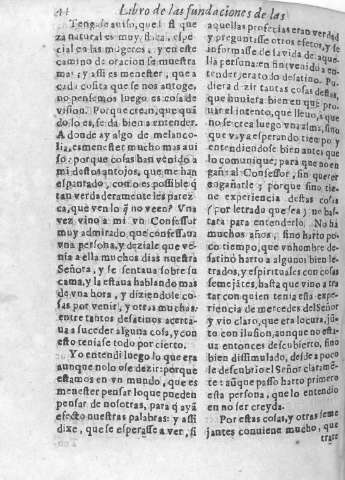 44
Libro de las fundaciones de las
Tengase auiso, que la flaque
za natural es muy flaca, espe
cial en las mugeres, y en este
camino de oracion se muestra
mas; y assi es menester, que a
cada cosita que se nos antoge,
no pensemos luego es cosa de
vision. Porque crean, que quã
do lo es, se da bien a entender.
A donde ay algo de melanco-
lia, es menester mucho mas aui
so: porque cosas han venido a
mi destos antojos, que me han
espantado, como es possible q̃
tan verdaderamente les parez
ca, que ven lo q̃ no veen? Vna
vez vino a mi vn Confessor
muy admirado, que confessaua
vna persona, y deziale que ve-
nia a ella muchos dias nuestra
Señora, y se sentaua sobre su
cama, y la estaua hablando mas
de vna hora, y diziendole co-
sas por venir, y otras muchas:
entre tantos desatinos acerta-
ua a suceder alguna cosa, y con
esto teniase todo por cierto.
Yo entendi luego lo que era
aunque no lo ose dezir: porque
estamos en vn mundo, que es
menester pensar lo que pueden
pensar de nosotras, para q̃ ayã
efecto nuestras palabras: y assi
dixe, que se esperasse a ver, si
aquellas profecias eran verdad
y preguntasse otros efetos, y se
informasse de la vida de aque-
lla persona: en fin venido a en-
tender, era todo desatino. Pu-
diera dezir tantas cosas destas,
que huuiera bien en que pro-
uar el intento, que lleuo, a que
no se crea luego vn alma, sino
que vaya esperando tiempo y
entendiendose bien antes que
lo comunique; para que no en
gañe al Confessor, sin querer
engañarle; porque sino tie-
ne experiencia destas cosas
(por letrado que sea) no bas-
tara para entenderlo. No ha
muchos años, sino harto po-
co tiempo, que vn hombre de-
satinò harto a algunos bien le-
trados, y espirituales con cosas
semejātes, hasta que vino a tra
tar con quien tenia esta expe-
riencia de mercedes del Señor
y vio claro, que era locura, jũ-
to con ilusion, aunque no esta-
ua entonces descubierto, sino
bien dissimulado, desde a poco
le descubrio el Señor claramẽ-
te: aũque passò harto primero
esta persona, que lo entendio
en no ser creyda.
Por estas cosas, y otras seme
jantes conuiene mucho, que
trate